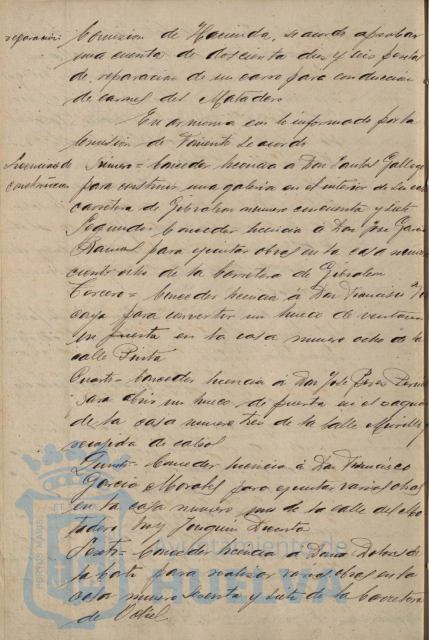 reparación
Comisión de Hacienda, se acordó aprobar
una cuenta de doscientas diez y seis pesetas
de reparación de un carro para conducción
de carnes del Matadero
En armonía con lo informado por la
Comisión de Fomento se acordó
Licencias de
construcción
Primero = Conceder licencia á Don Santos Gallego
para construir una galería en el interior de su casa
carretera de Gibraleon número cincuenta y siete
Segundo = Conceder licencia á Don José García
para ejecutar obras en la casa número
ciento ocho de la Carretera de Gibraleon
Tercero = Conceder licencia á Don Francisco
para convertir un hueco de ventana
en puerta en la casa número ocho de la
calle Punta
Cuarto = Conceder licencia á Don José Pérez
para abrir un hueco de puerta en el
de la casa número tres de la Calle
Quinto = Conceder licencia á Don Francisco
García Morales para ejecutar varias obras
en la casa número uno de la calle del Ma-
tadero, hoy Joaquín
Sexto = Conceder licencia á Doña Dolores de
para realizar varias obras en la
casa número sesenta y siete de la Carretera
de Odiel
PORTUS MARIS ET
Ayuntamiento de
HUELVA